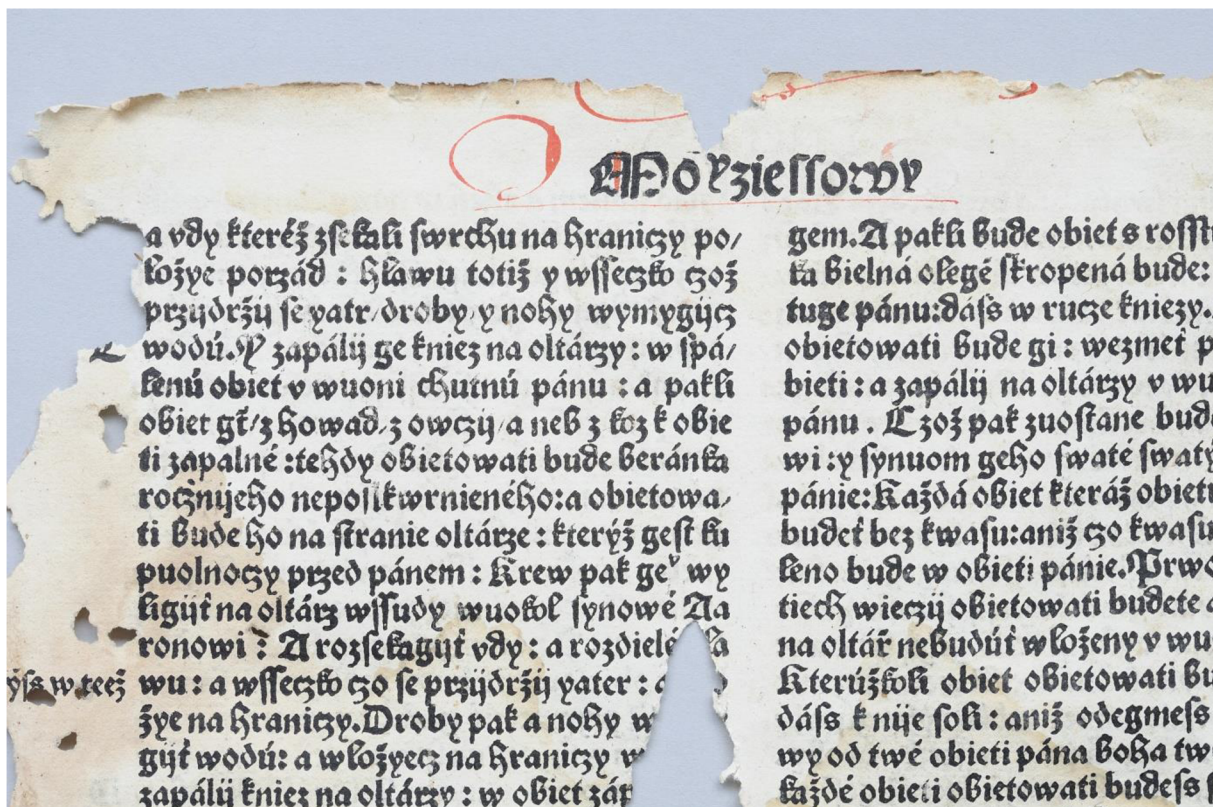 Moyziessowy
a vdy kteréž zsekali swrchu na hraniczy po/
ložye porzád : hlawu totiž y wsseczko czož
przijdržij se yatr/droby/y nohy wymygijcz
wodú. Y zapálij ge kniez na oltárzy : w spá/
lenú obiet v wuoni chutnú pánu : a pakli
obiet gt/z howad/z owczij/a neb z koz k obie
ti zapalné :tehdy obietowati bude beránka
rocznijeho neposskwrnieného:a obietowa/
ti bude ho na stranie oltárze : kterýž gest ku
puolnoczy przed pánem : Krew pak geº wy
ligijt na oltárz wssudy wuokol synowé Aa
ronowi : A rozsekagijt vdy : a rozdielé
ýss w teež
wu : a wsseczko czo se przijdržij yater :
žye na hraniczy. Droby pak a nohy
gijt wodú: a wložyecz na hraniczy
zapálij kniez na oltárzy : w obiet
gem. A pakli bude obiet s
ka bielná olegé skropená bude:
tuge pánu:dáss w rucze kniezy.
obietowati bude gi : wezmet
bieti : a zapálij na oltárzy v
pánu . Czož pak zuostane
wi :y synuom geho swaté
pánie:Každá obiet kteráž
budet bez kwasu:aniž czo
leno bude w obieti pánie. Prwo
tiech wieczij obietowati budete
na oltář nebudút wloženy v
Kterúžkoli obiet obietowati
dáss k nije soli : aniž odegmess
wy od twé obieti pána boha
každé obieti obietowati budess